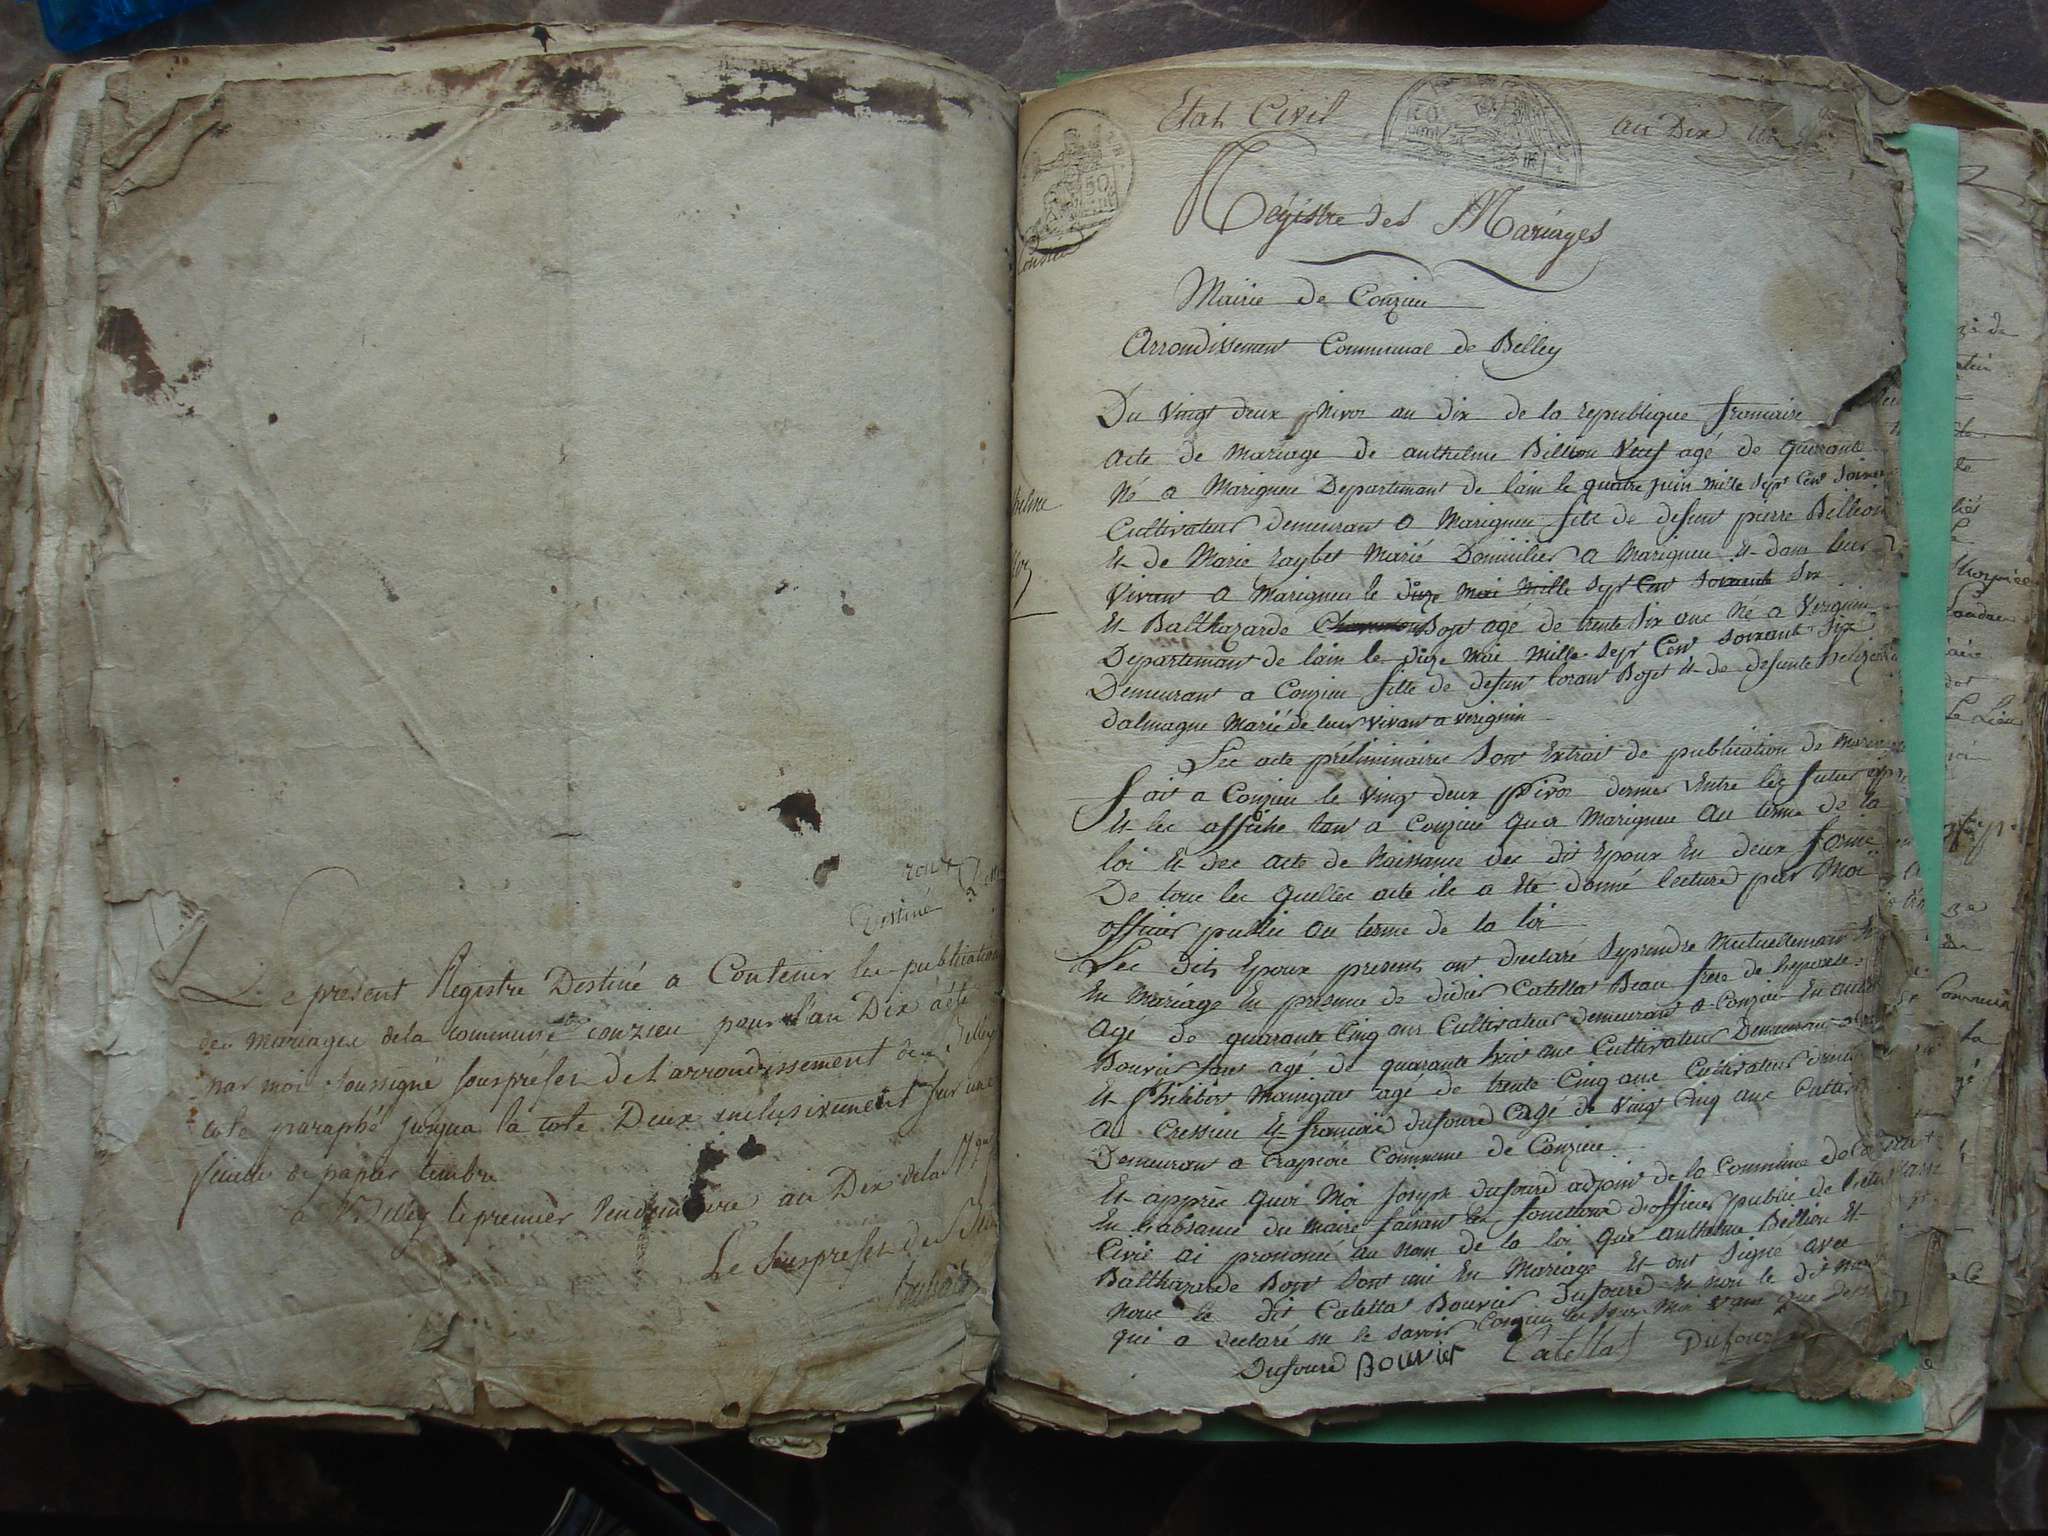 Destiné
Le présent Registre Destiné a Contenir les publications
des mariages de la commune de conzieu pour l'an Dix a été
par moi soussigné souspréfet de l'arrondissement de Belley
coté paraphé jusqua la cote Deux inclusivement sur une
feuille de papier timbré
a Belley le premier Vendemiaire an Dix de la
Le Souspréfet de
Etat Civil
an Dix
50
Registre des Mariages
Mairie de Conzieu
Arrondissement Communal de Belley
Du Vingt deux Nivos an dix de la republique francaise
acte de Mariage de anthelme Billion Veuf agé de quarante
Né a Marigneu Departement de lain le quatre juin mille Sept Cent
Cultivateur demeurant a Marigneu fils de defunt pierre Billion
et de Marie raybet Marié Domicilies a Marigneu et dans leur
Vivant a Marigneu le dize mai mille Sept Cent Soixante Six
Et Balthazarde Bojet agé de trente Six ans Né a Verignin
Departement de lain le dize mai mille Sept Cent Soixante Six
Demeurant a Conzieu fille de defunt loran Bojet et de defunte
dalmagne Marié de leur vivant a verignin
Les acte préliminaire Sont Extrait de publication de
fait a Conzieu le Vingt deux dernier Entre les futur
et les affiche tant a Conzieu qu'a Marigneu au terme de la
loi et des acte de Naissance des dit Epoux En deux forme
De tous les quelles acte ils a Eté donné lecture par Moi
officier public au terme de la loi
Les dits Epoux presents ont declaré Seprendre Mutuellement
En Mariage En presence de didier Catella Beau frere de
agé de quarante Cinq ans Cultivateur demeurant a Conzieu
Bouvier agé de quarante huit ans Cultivateur Demeurant
Et Philibert Maniguet agé de trente Cinq ans Cultivateur
a Cressieu Et francois dufourd agé de Vingt Cinq ans
Demeurant a Crapieu Commune de Conzieu
Et apprès quoi Moi Joseph dufourd adjoint de la Commune de
En labsance du Maire faisant les fonctions d'officier public de
Civil ai prononcé au nom de la loi que anthelme Billion Et
Balthazarde Bojet Sont uni En Mariage Et ont Signé avec
nous Les dit Catella Bouvier dufourd Et non le dit
qui a declaré ne le Savoir Conzieu les jour Moi
dufourd Bouvier Catella Dufour